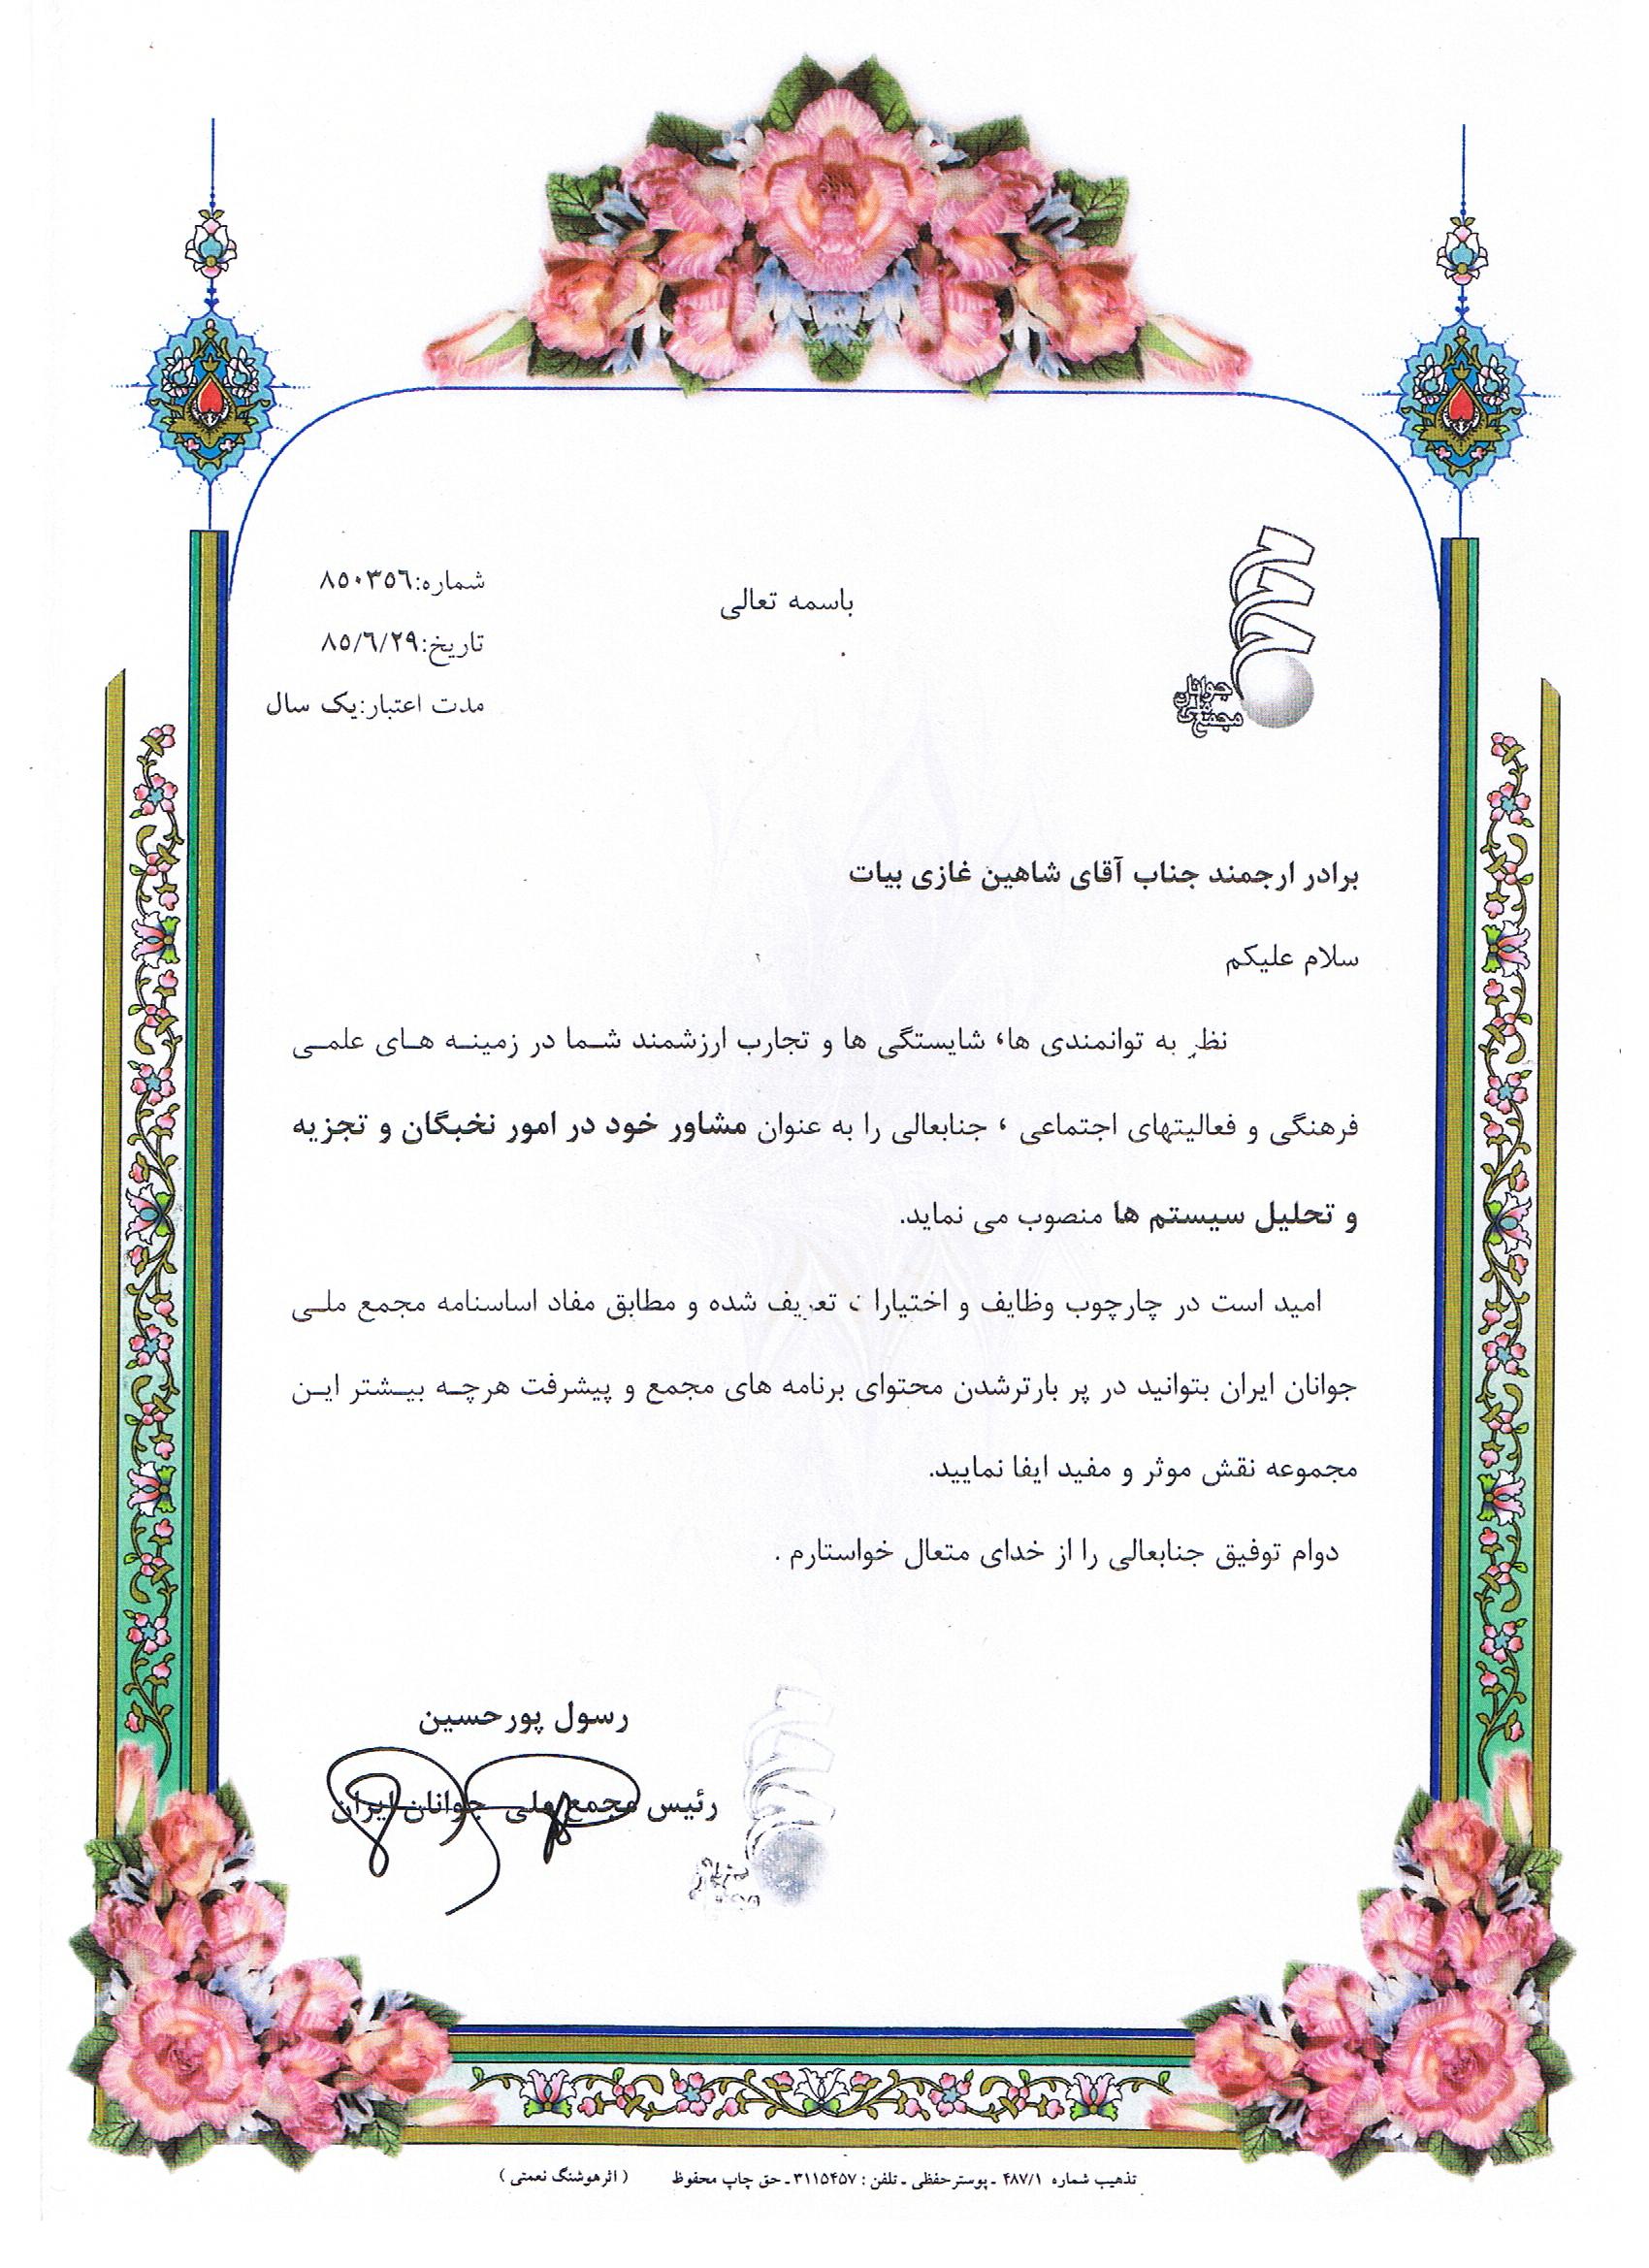 باسمه تعالی
شماره:۸۵۰۳۵۶
تاریخ:۸۵/۶/۲۹
مدت اعتبار:یک سال
جوانان
مجمع ملی
برادر ارجمند جناب آقای شاهین غازی بیات
سلام علیکم
نظر به توانمندی ها، شایستگی ها و تجارب ارزشمند شما در زمینه های علمی
فرهنگی و فعالیتهای اجتماعی ، جنابعالی را به عنوان مشاور خود در امور نخبگان و تجزیه
و تحلیل سیستم ها منصوب می نماید.
امید است در چارچوب وظایف و اختیارات تعریف شده و مطابق مفاد اساسنامه مجمع ملی
جوانان ایران بتوانید در پر بارترشدن محتوای برنامه های مجمع و پیشرفت هرچه بیشتر این
مجموعه نقش موثر و مفید ایفا نمایید.
دوام توفیق جنابعالی را از خدای متعال خواستارم .
رسول پورحسین
رئیس مجمع ملی جوانان ایران
تذهیب شماره ۴۸۷/۱ ـ پوسترحفظی ـ تلفن : ۳۱۱۵۴۵۷ ـ حق چاپ محفوظ ( اثرهوشنگ نعمتی )